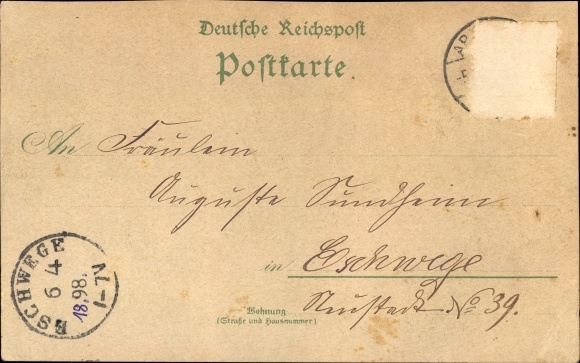 Deutsche Reichspost
Postkarte.
An Fräulein
Auguste Sundheim
in Eschwege
Wohnung
(Straße und Hausnummer)
Neustadt No 39.
ESCHWEGE
6 4
18.98.